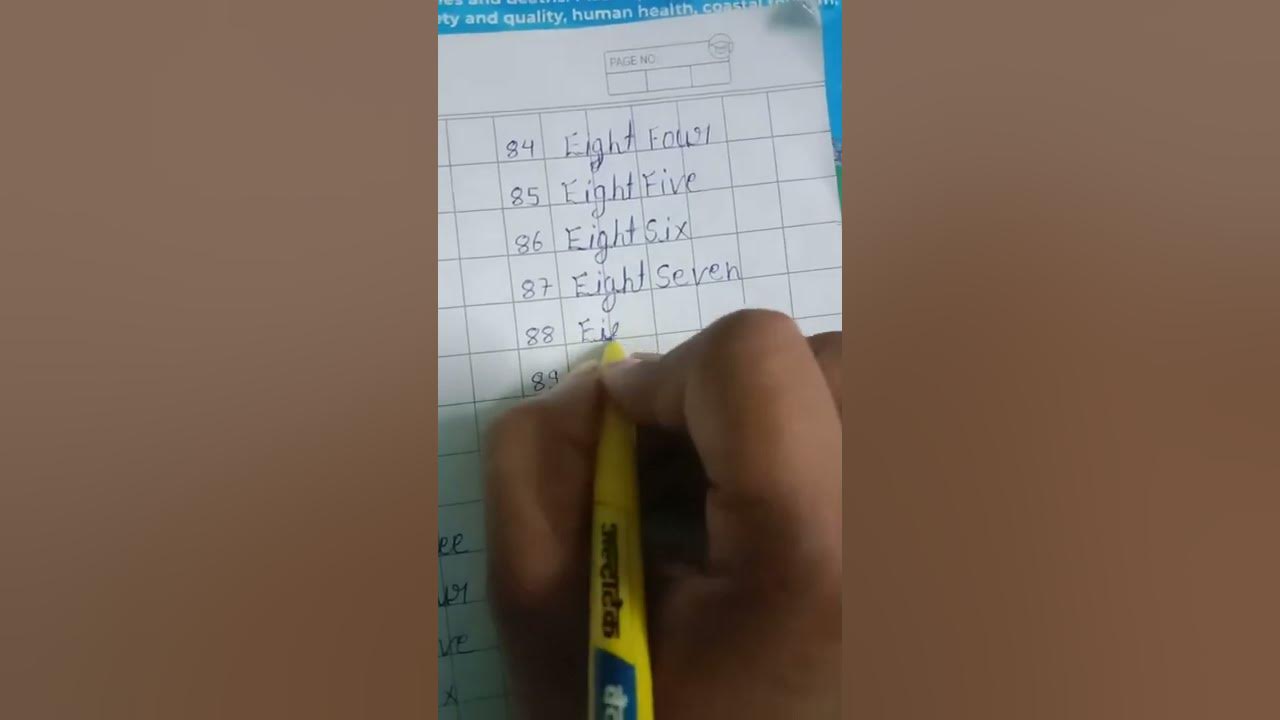 ty and quality, human health, coastal
PAGE NO.
84 Eight Four
85 Eight Five
86 Eight Six
87 Eight Seven
88 Eie
89
ee
ur
ve
x